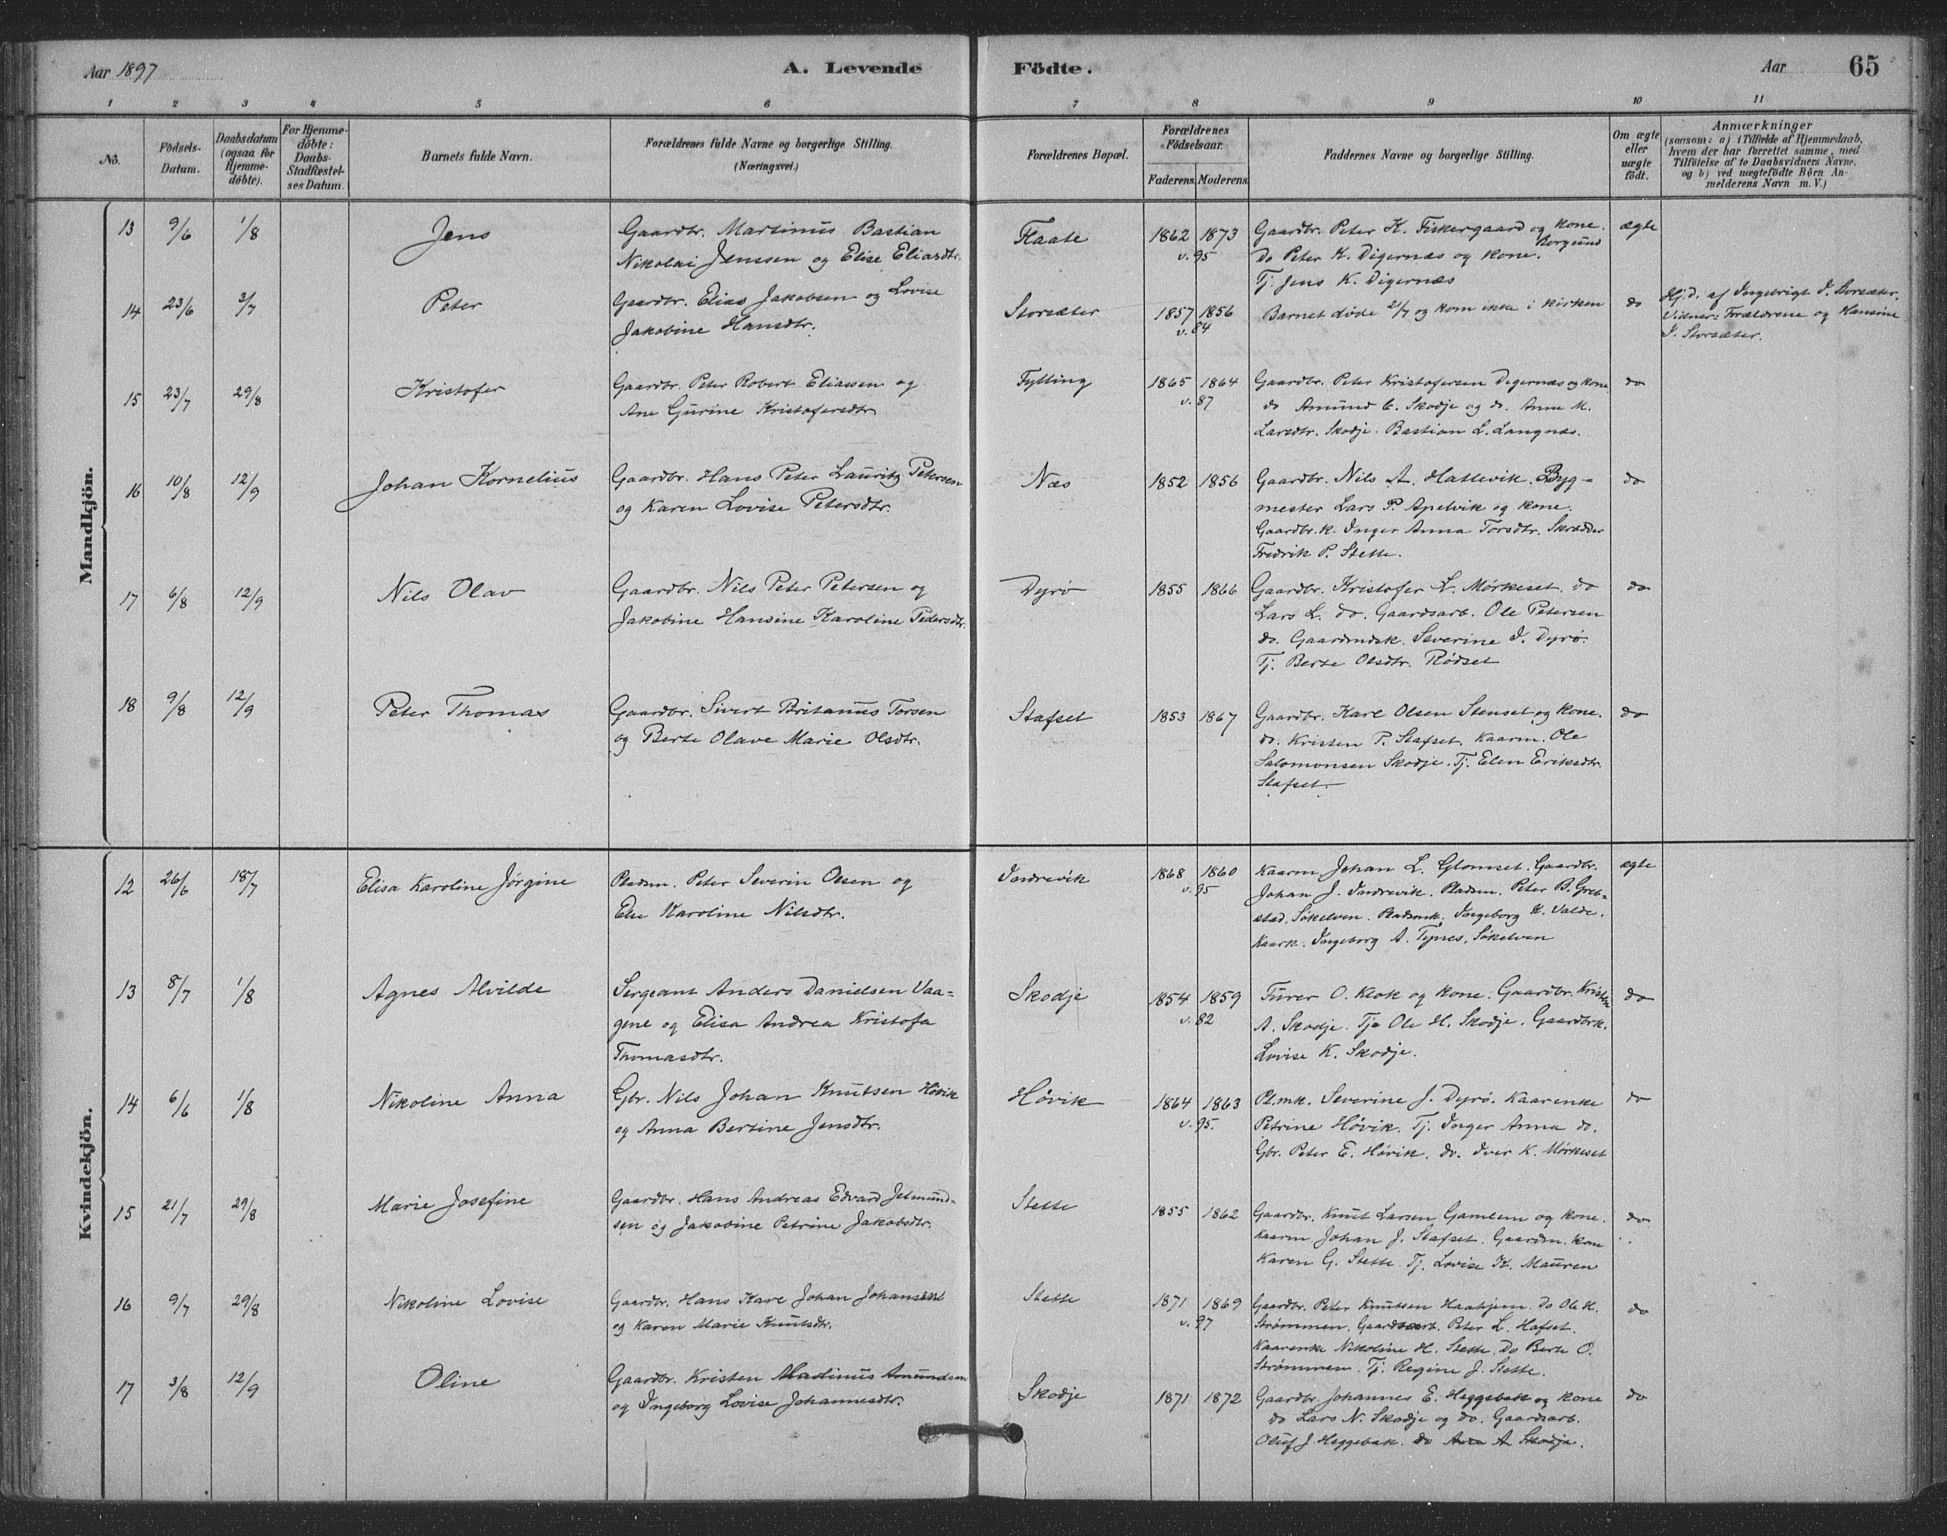 Aar 1897
A. Levende
Födte.
Aar
65
1 2 3 4 5 6 7 8 9 10 11
No.
Födsels-Datum.
Daabsdatum (ogsaa for Hjemme-døbte).
For Hjemme-døbte: Daabs-Stadfæstel-ses Datum.
Barnets fulde Navn.
Forældrenes fulde Navne og borgerlige Stilling.
(Næringsvei.)
Forældrenes Bopæl.
Forældrenes Födselsaar.
Faderens. Moderens.
Faddernes Navne og borgerlige Stilling.
Om ægte eller uægte födt.
Anmærkninger
(saasom: a) i Tilfælde af Hjemmedaab,
hvem der har forrettet samme, med
Tilföielse af to Daabsvidners Navne,
og b) ved uægtefödte Börn An-
melderens Navn m. V.)
Mandkjön.
13 9/6 1/8 Jens
Gaardbr. Martinus Bastian
Nikolai Jenssen og Elise Eliasdtr.
Flaate 1862 1873 v. 95
Gaardbr. Peter K. Fiskergaard og kone. Borgund
do Peter K. Digernæs og kone.
Tj. Jens K. Digernæs
ægte
14 23/6 3/7 Peter
Gaardbr. Elias Jakobsen og Lovise
Jakobine Hansdtr.
Storsæter 1857 1856 v. 84
Barnet døde 21/7 og kom ikke i kirken
do
Hj.D. af Ingebrigt J. Storsæter.
Vidner: Forældrene og Hansine
J. Storsæter.
15 23/7 29/8 Kristofer
Gaardbr. Peter Robert Eliassen og
Ane Gurine Kristofersdtr.
Fylling 1865 1864 v. 87
Gaardbr. Peter Kristofersen Digernæs og kone
do Amund C. Skodje og do. Anne M.
Larsdtr. Skodje. Bastian L. Langnæs.
do
16 10/8 12/9 Johan Kornelius
Gaardbr. Hans Peter Lauritz Petersen
og Karen Lovise Petersdtr.
Næs 1852 1856
Gaardbr. Nils A. Hattevik. Byg-
mester Lars P. Apelvik og kone.
Gaardbr.k. Inger Anna Torsdtr. Skrædder
Fredrik P. Stette.
do
17 6/8 12/9 Nils Olav
Gaardbr. Nils Peter Petersen og
Jakobine Hansine Karoline Pedersdtr.
Dyrø 1855 1866
Gaardbr. Kristofer L. Mørkeset. do
Lars L. do. Gaardsarb. Ole Petersen
do. Gaardmdsk. Severine J. Dyrø.
Tj. Berte Olsdtr. Rødset
do
18 9/8 12/9 Peter Thomas
Gaardbr. Sivert Britanus Torsen
og Berte Olave Marie Olsdtr.
Stafset 1853 1867
Gaardbr. Karl Olsen Stenset og kone.
do. Kristen P. Stafset. Kaarm. Ole
Salomonsen Skodje. Tj. Elen Eriksdtr.
Stafset.
do
Kvindekjön.
12 26/6 18/7 Elisa Karoline Jørgine
Pladsm. Peter Severin Olsen og
Else Karoline Nilsdtr.
Indrevik 1868 1860 v. 95
Kaarm Johan L. Glomset. Gaardbr.
Johan J. Indrevik. Pladsm. Peter B. Greb-
stad. Søkelven. Pladsmk. Ingeborg K. Valde.
Kaark. Ingeborg A. Tynes, Søkelven
ægte
13 8/7 1/8 Agnes Alvilde
Sergeant Anders Danielsen Vaa-
gene og Elisa Andrea Kristofa
Thomasdtr.
Skodje 1854 1859 v. 82
Furer O. Klok og kone. Gaardbr. Kristen
A. Skodje. Tje Ole H. Skodje. Gaardbrk.
Lovise K. Skodje.
do
14 6/6 1/8 Nikoline Anna
Gbr. Nils Johan Knutsen Høvik
og Anna Bertine Jensdtr.
Høvik 1864 1863 v. 95.
Pl.mk. Severine J. Dyrø. Kaarenke
Petrine Høvik. Tj. Inger Anna do.
Gbr. Peter E. Høvik. do. Iver K. Mørkeset
do
15 21/7 29/8 Marie Josefine
Gaardbr. Hans Andreas Edvard Jetmund-
sen og Jakobine Petrine Jakobsdtr.
Stette 1855 1862
Gaardbr. Knut Larsen Gamlem og kone.
Kaarm Johan J. Stafset. Gaardm. kone
Karen G. Stette. Tj. Lovise K. Mauren
do
16 9/7 29/8 Nikoline Lovise
Gaardbr. Hans Karl Johan Johansen
og Karen Marie Knutsdtr.
Stette 1871 1869 v. 97
Gaardbr. Peter Knutsen Haahjem. Do Ole H.
Strømmen. Gaardsarb. Peter L. Hafset.
Kaarenke Nikoline H. Stette. Do Berte O.
Strømmen. Tj. Regine J. Stette.
do
17 3/8 12/9 Oline
Gaardbr. Kristen Martinus Amundsen
og Ingeborg Lovise Johannesdtr.
Skodje 1871 1872
Gaardbr. Johannes E. Heggebak og kone
do Lars N. Skodje og do. Gaardsarb.
Oluf J. Heggebak. do Ane A Skodje.
do